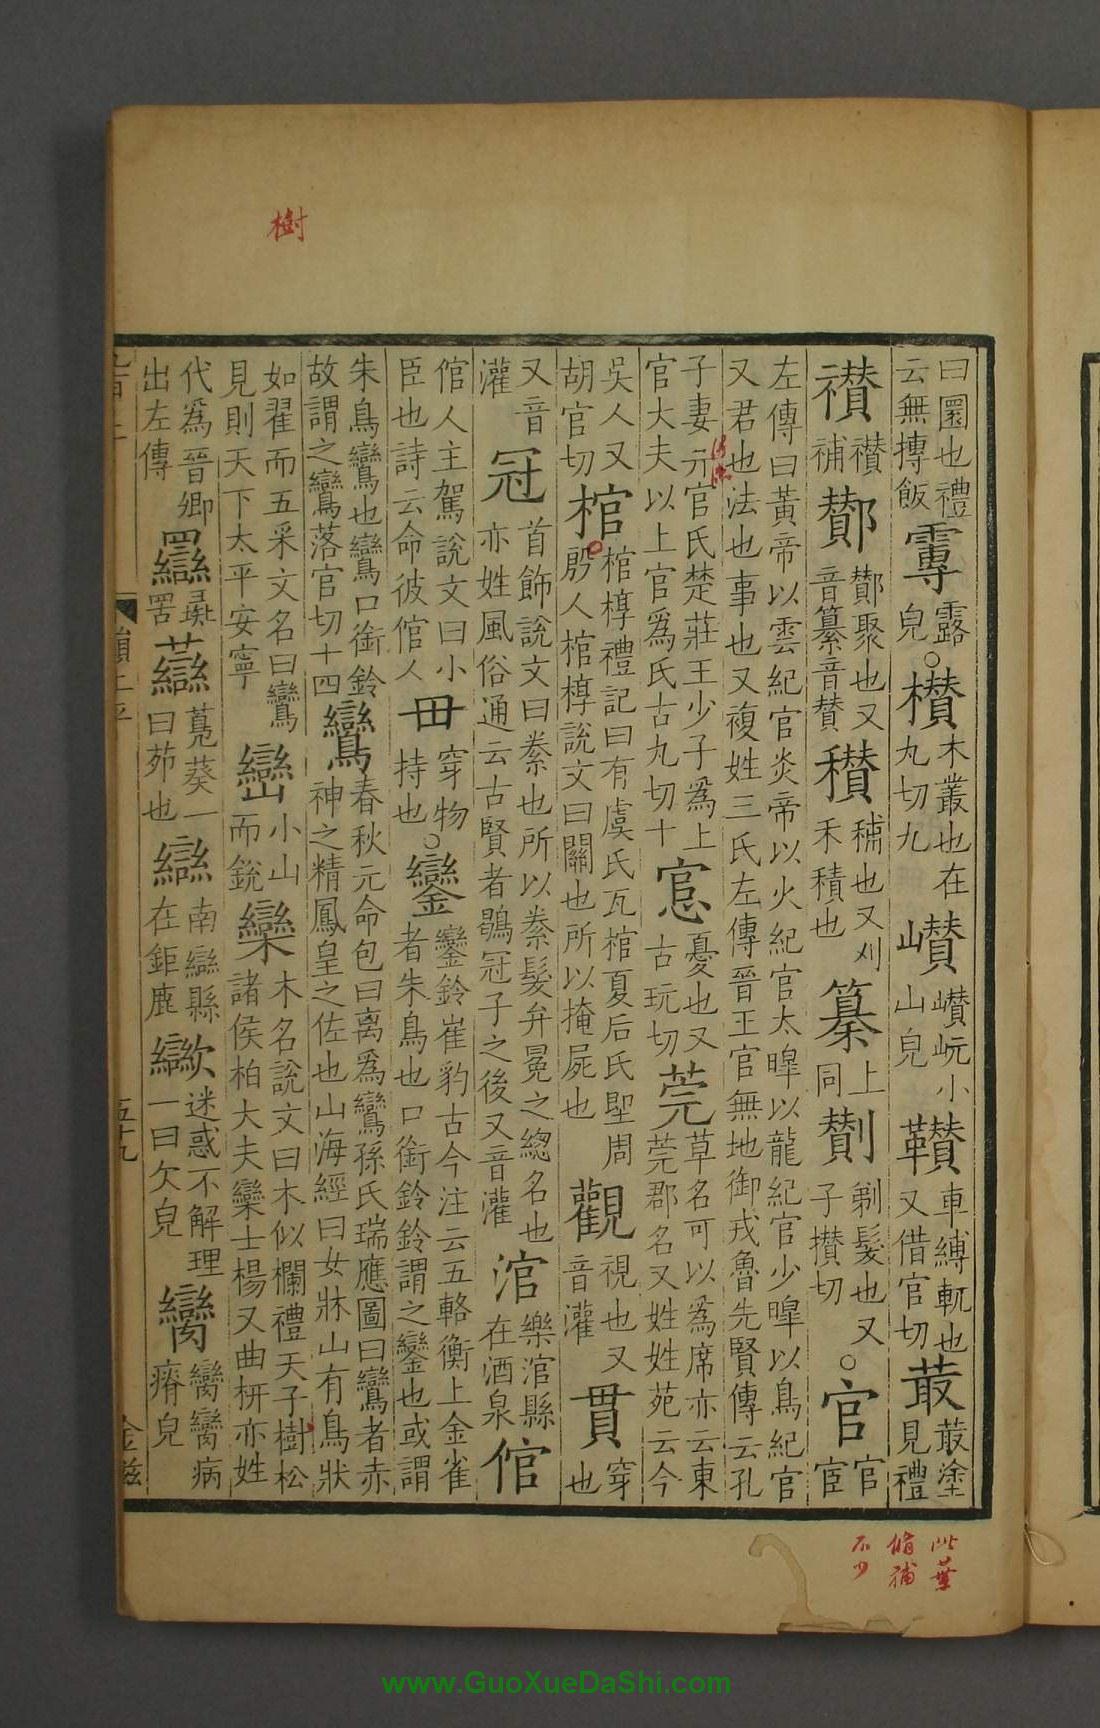 樹
曰圜也禮云無摶飯䨠露皃○欑木叢也在丸切九巑巑岏小山皃車縛軏也又借官切菆菆塗見禮
禶禶補酇酇聚也又音纂音贊穳秿也又刈禾積也上同劗剃髮也又子攢切○官官宦
左傳曰黃帝以雲紀官炎帝以火紀官太皥以龍紀官少皥以鳥紀官又君也法也事也又複姓三氏左傳晉王官無地御戎魯先賢傳云孔
子妻亓官氏楚莊王少子爲上官大夫以上官爲氏古丸切十悹憂也又古玩切莞草名可以爲席亦云東莞郡名又姓姓苑云今
吳人又胡官切棺棺椁禮記曰有虞氏瓦棺夏后氏堲周殷人棺椁說文曰關也所以掩屍也觀視也又音灌貫穿也
又音灌冠首飾說文曰絭也所以絭髮弁冕之總名也亦姓風俗通云古賢者鶡冠子之後又音灌涫樂涫縣在酒泉倌
倌人主駕說文曰小臣也詩云命彼倌人毌穿物持也○鑾鑾鈴崔豹古今注云五輅衡上金雀者朱鳥也口銜鈴鈴謂之鑾也或謂
朱鳥鸞也鸞口銜鈴故謂之鸞落官切十四鸞春秋元命包曰离爲鸞孫氏瑞應圖曰鸞者赤神之精鳳皇之佐也山海經曰女牀山有鳥狀
如翟而五采文名曰鸞見則天下太平安寧巒小山而銳欒木名說文曰木似欄禮天子樹松諸侯柏大夫欒士楊又曲枅亦姓
代爲晉卿出左傳羉彘罟虊蒬葵一曰茆也䜌南䜌縣在鉅鹿𣤶迷惑不解理一曰欠皃臠臠臠病瘠皃
五十九
金滋
此葉
修補
不少
www.GuoXueDaShi.com